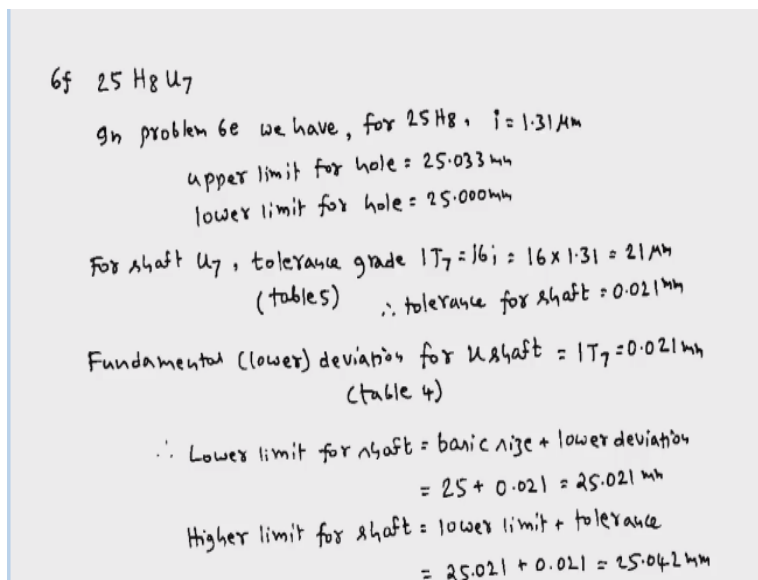 6f 25 H8 U7
In problem 6e we have, for 25 H8, i = 1.31 μm
upper limit for hole = 25.033 mm
lower limit for hole = 25.000 mm
For shaft U7, tolerance grade IT7 = 16i = 16 x 1.31 = 21 μm
(table 5) ∴ tolerance for shaft = 0.021 mm
Fundamental (lower) deviation for u shaft = IT7 = 0.021 mm
(table 4)
∴ Lower limit for shaft = basic size + lower deviation
= 25 + 0.021 = 25.021 mm
Higher limit for shaft = lower limit + tolerance
= 25.021 + 0.021 = 25.042 mm